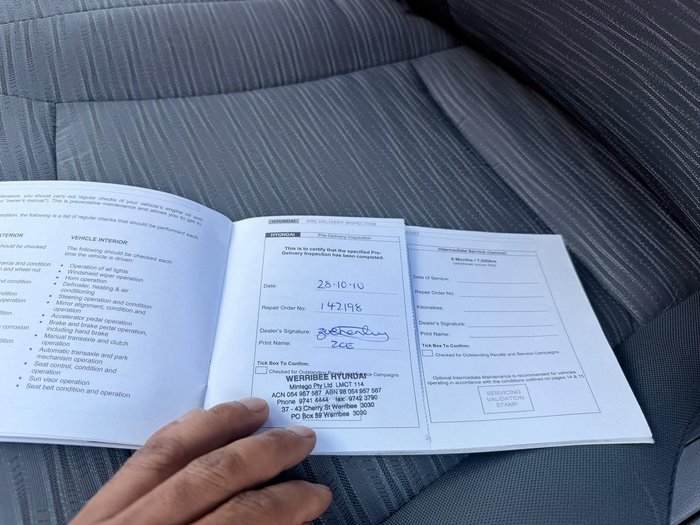 maintenance, you should carry out regular checks of your vehicle's engine oil and
"owner's manual"). This is preventative maintenance and allows you to get to
condition, the following is a list of regular checks that should be performed each
VEHICLE INTERIOR
The following should be checked each
time the vehicle is driven:
• Operation of all lights
• Windshield wiper operation
• Horn operation
• Defroster, heating & air
conditioning
• Steering operation and condition
• Mirror alignment, condition and
operation
• Accelerator pedal operation
• Brake and brake pedal operation,
including hand brake
• Manual transaxle and clutch
operation
• Automatic transaxle and park
mechanism operation
• Seat control, condition and
operation
• Seat belt condition and operation
• Sun visor operation
EXTERIOR
should be checked
and condition
and wheel nut
condition
condition
condition
condition
or corrosion
condition
HYUNDAI PRE DELIVERY INSPECTION
HYUNDAI Pre-Delivery Inspection
This is to certify that the specified Pre-
Delivery Inspection has been completed.
Date: 28·10·10
Repair Order No: 142198
Dealer's Signature:
Print Name: ZOE
Tick Box To Confirm:
Checked for Outstanding Recalls and Service Campaigns
WERRIBEE HYUNDAI
Mintego Pty Ltd LMCT 114
ACN 054 957 587 ABN 98 054 957 587
Phone 9741 4444 fax 9742 3790
37 - 43 Cherry St Werribee 3030
PO Box 59 Werribee 3030
Intermediate Service (Optional)
6 Months / 7,500km
(whichever occurs first)
Date of Service:
Repair Order No:
Kilometres:
Dealer's Signature:
Print Name:
Tick Box To Confirm:
Checked for Outstanding Recalls and Service Campaigns
Optional Intermediate Maintenance is recommended for vehicles
operating in accordance with the conditions outlined on pages 14 & 15
SERVICING
VALIDATION
STAMP